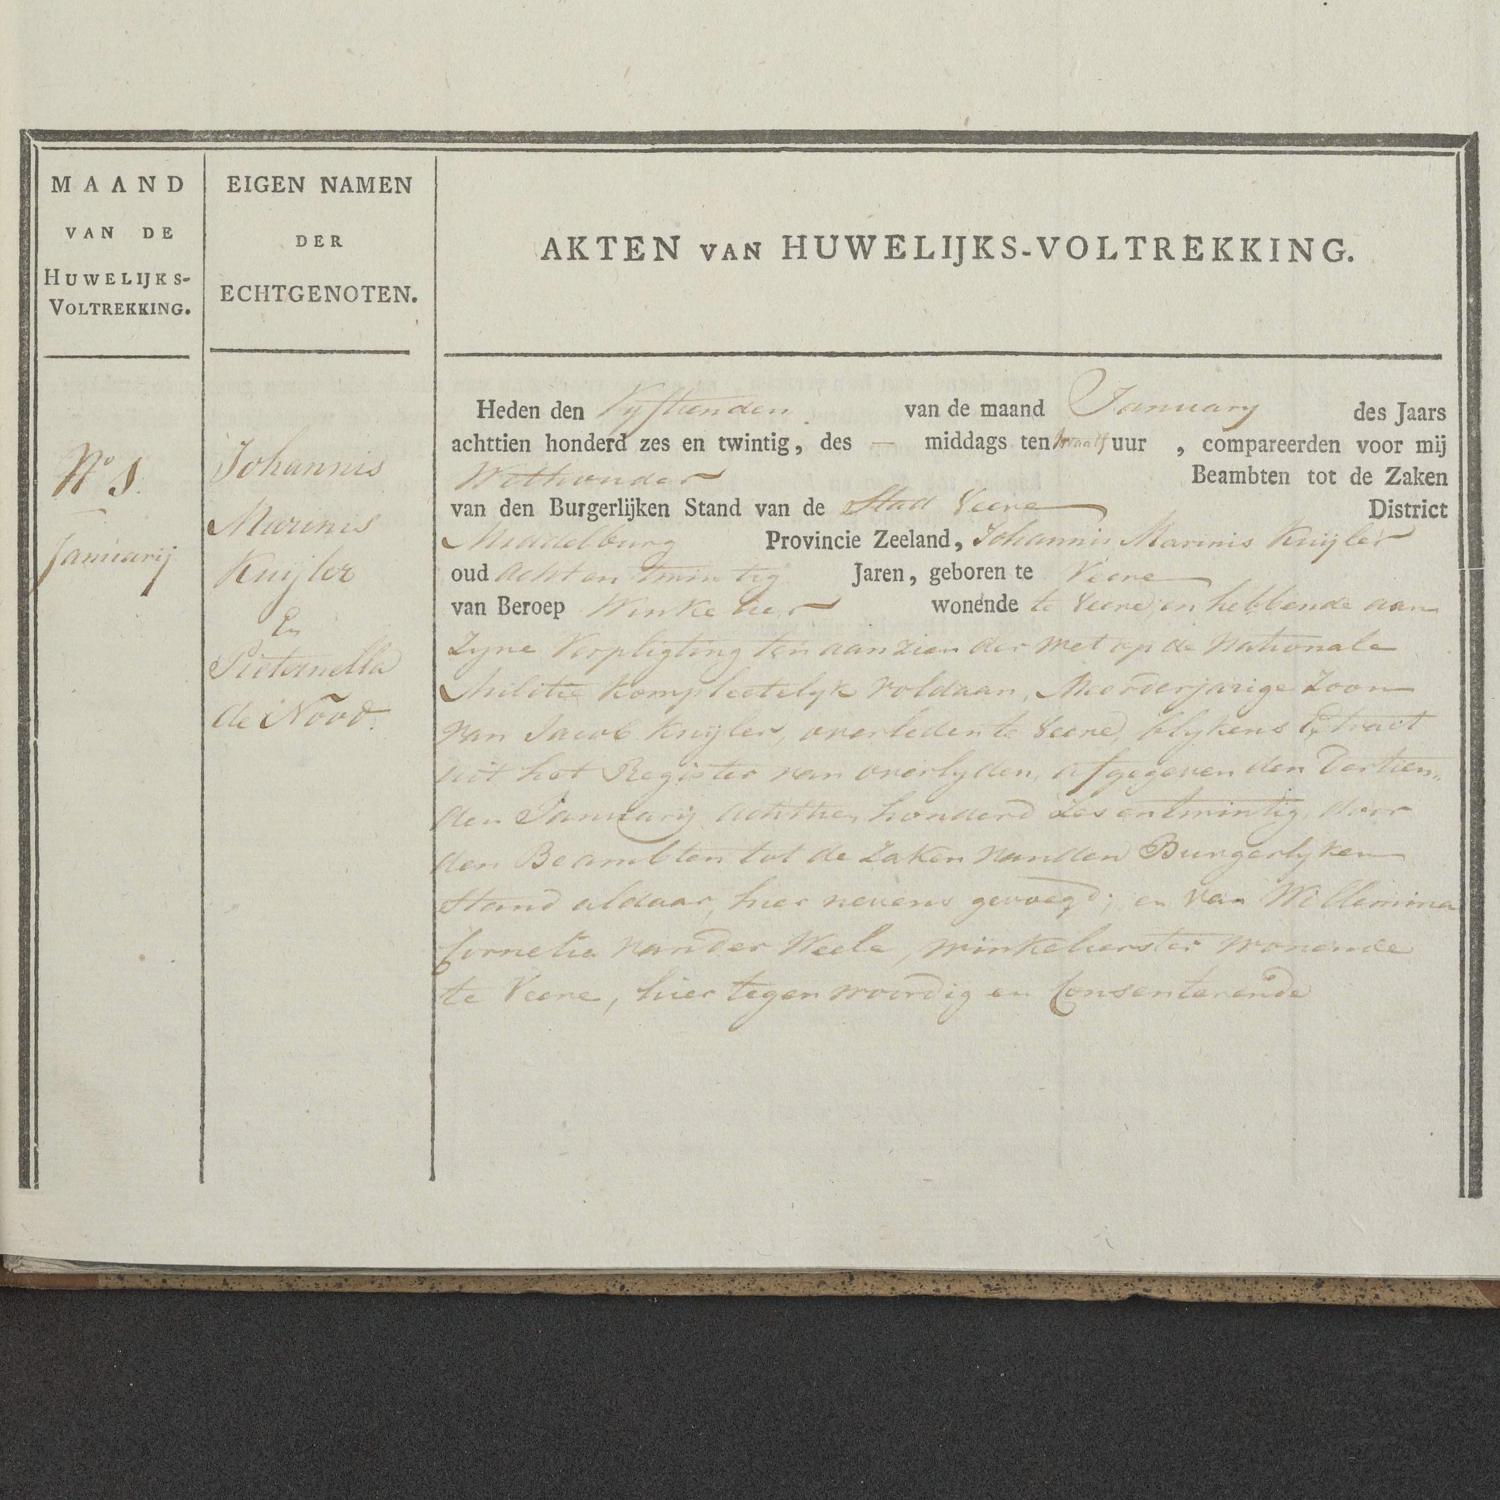 MAAND
VAN DE
HUWELIJKS-
VOLTREKKING.
EIGEN NAMEN
DER
ECHTGENOTEN.
AKTEN VAN HUWELIJKS-VOLTREKKING.
No 1.
Januarij
Johannis
Marinis
Kuijler
En
Pieternella
de Nood.
Heden den Vyftienden van de maand January des Jaars
achttien honderd zes en twintig, des — middags ten twaalf uur , compareerden voor mij
Wethouder Beambten tot de Zaken
van den Burgerlijken Stand van de Stad Veere District
Middelburg Provincie Zeeland, Johannis Marinis Kuijler
oud acht en twintig Jaren, geboren te Veere
van Beroep Winkelier wonende te Veere, en hebbende aan
Zyne Verpligting ten aanzien der wet op de Nationale
Militie kompleetelyk voldaan, Meerderjarige Zoon
van Jacob Kuijler, overleden te Veere, blykens Extract
uit het Register van overlyden, afgegeven den Dertien-
den January achttien honderd zes en twintig, door
den Beambten tot de zaken van den Burgerlyken
Stand aldaar, hier nevens gevoegd; en van Willemina
Cornelia van der Weele, winkelierster wonende
te Veere, hier tegenwoordig en Consenterende